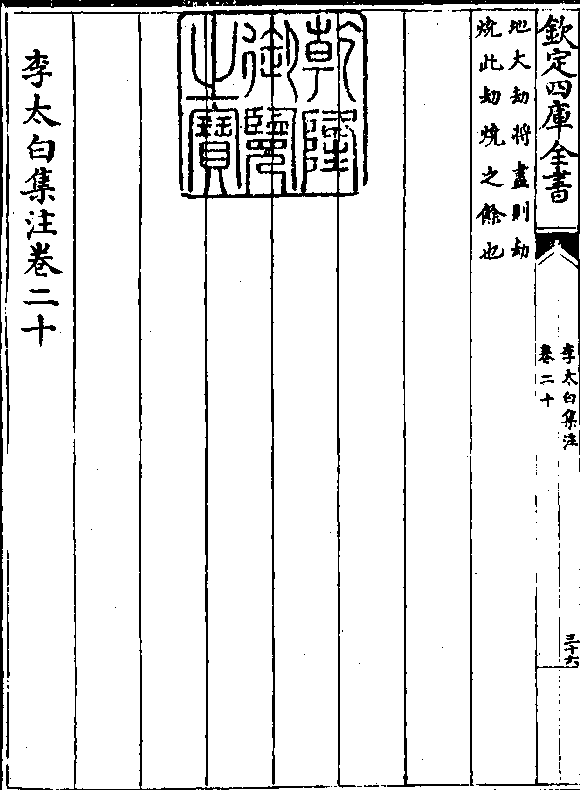 欽定四庫全書
李太白集注
卷二十
三十六
地大劫將盡則劫
燒此劫燒之餘也
乾隆
御覽
之寶
李太白集注卷二十